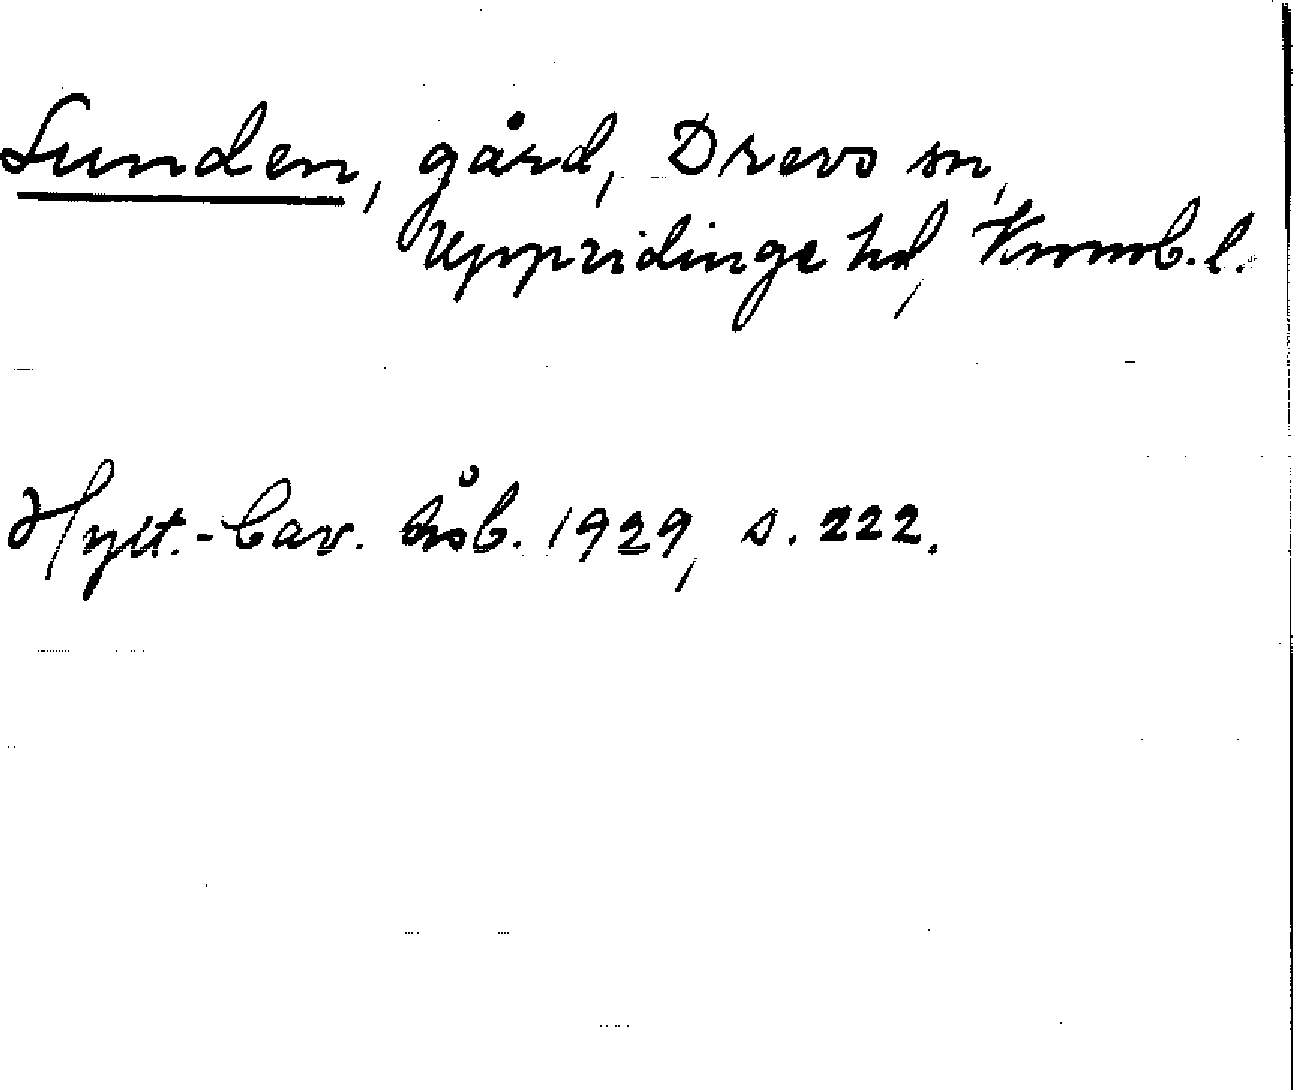 Sunden, gård, Drevs sn,
Uppvidinge hd, Kronob. l.
Hylt.-Cav. åsb. 1929, s. 222.